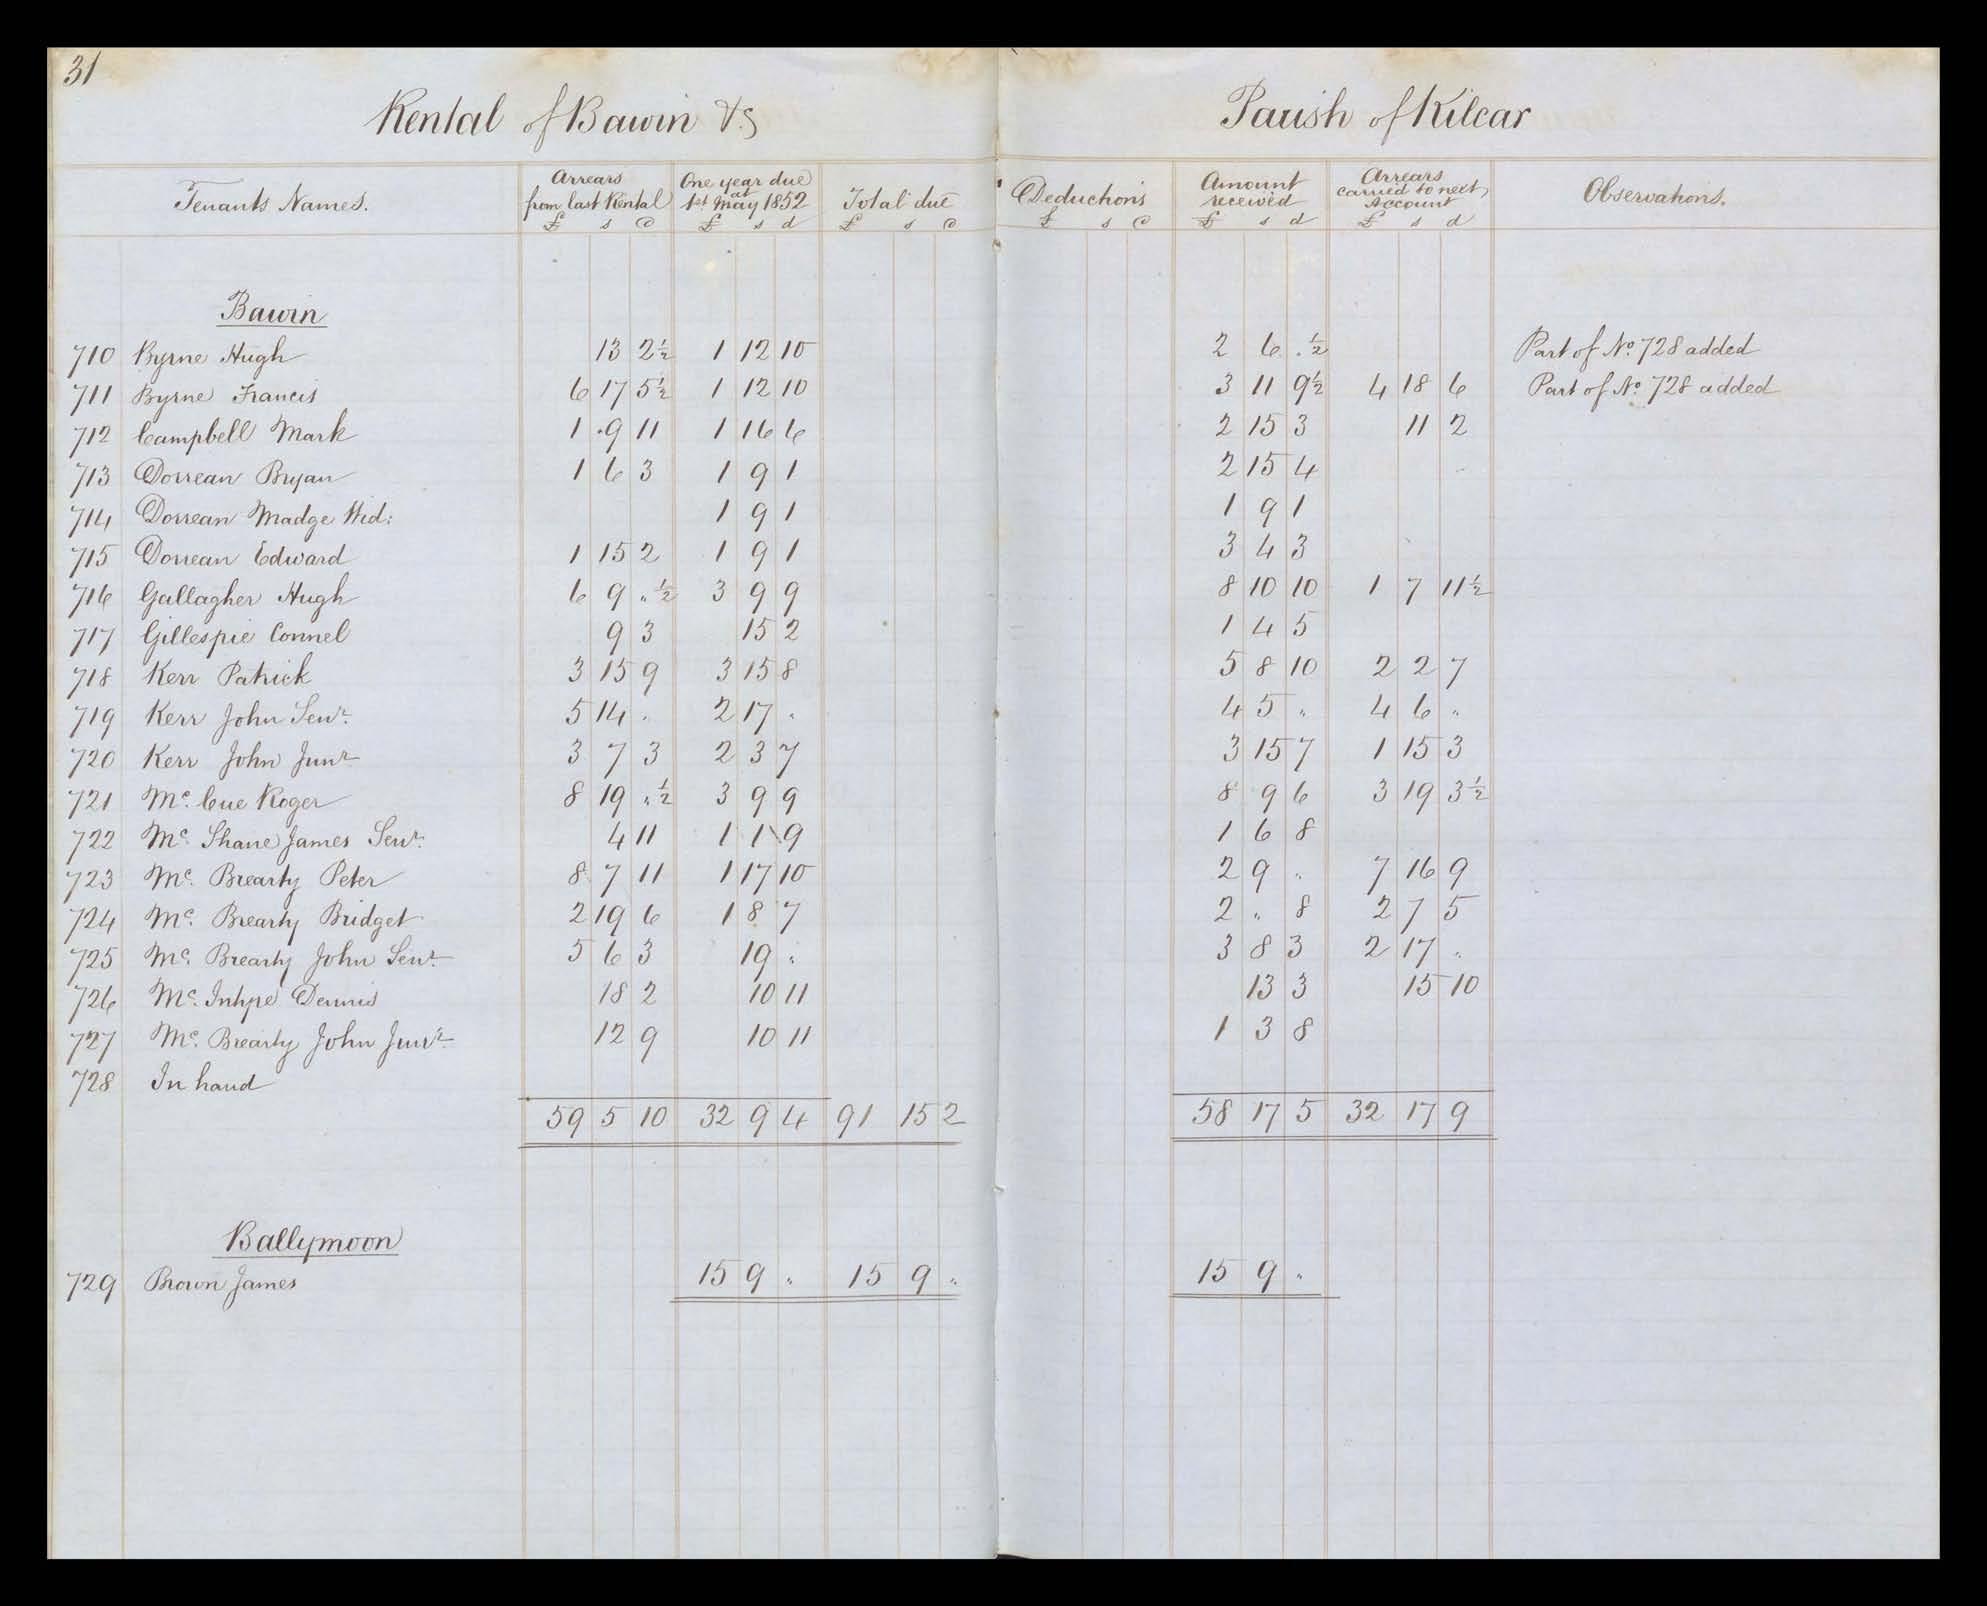 31
Rental of Bawin &c
Parish of Kilcar
Tenants Names.
Arrears from last Rental £ s d
One year due at 1st May 1852 £ s d
Total due £ s d
Deductions £ s d
Amount received £ s d
Arrears carried to next Account £ s d
Observations.
Bawin
710 Byrne Hugh 13 2½ 1 12 10 2 6 . ½ Part of No. 728 added
711 Byrne Francis 6 17 5½ 1 12 10 3 11 9½ 4 18 6 Part of No. 728 added
712 Campbell Mark 1 9 11 1 16 6 2 15 3 11 2
713 Dorrean Bryan 1 6 3 1 9 1 2 15 4
714 Dorrean Madge Wid: 1 9 1 1 9 1
715 Dorrean Edward 1 15 2 1 9 1 3 4 3
716 Gallagher Hugh 6 9 „ ½ 3 9 9 8 10 10 1 7 11½
717 Gillespie Connel 9 3 15 2 1 4 5
718 Kerr Patrick 3 15 9 3 15 8 5 8 10 2 2 7
719 Kerr John Senr. 5 14 . 2 17 . 4 5 „ 4 6 „
720 Kerr John Junr. 3 7 3 2 3 7 3 15 7 1 15 3
721 Mc. Cue Roger 8 19 „ ½ 3 9 9 8 9 6 3 19 3½
722 Mc. Shane James Senr. 4 11 1 1 9 1 6 8
723 Mc. Brearty Peter 8 7 11 1 17 10 2 9 „ 7 16 9
724 Mc. Brearty Bridget 2 19 6 1 8 7 2 „ 8 2 7 5
725 Mc. Brearty John Senr. 5 6 3 19 „ 3 8 3 2 17 „
726 Mc. Intyre Dennis 18 2 10 11 13 3 15 10
727 Mc. Brearty John Junr. 12 9 10 11 1 3 8
728 In hand
59 5 10 32 9 4 91 15 2 58 17 5 32 17 9
Ballymoon
729 Brown James 15 9 „ 15 9 „ 15 9 „